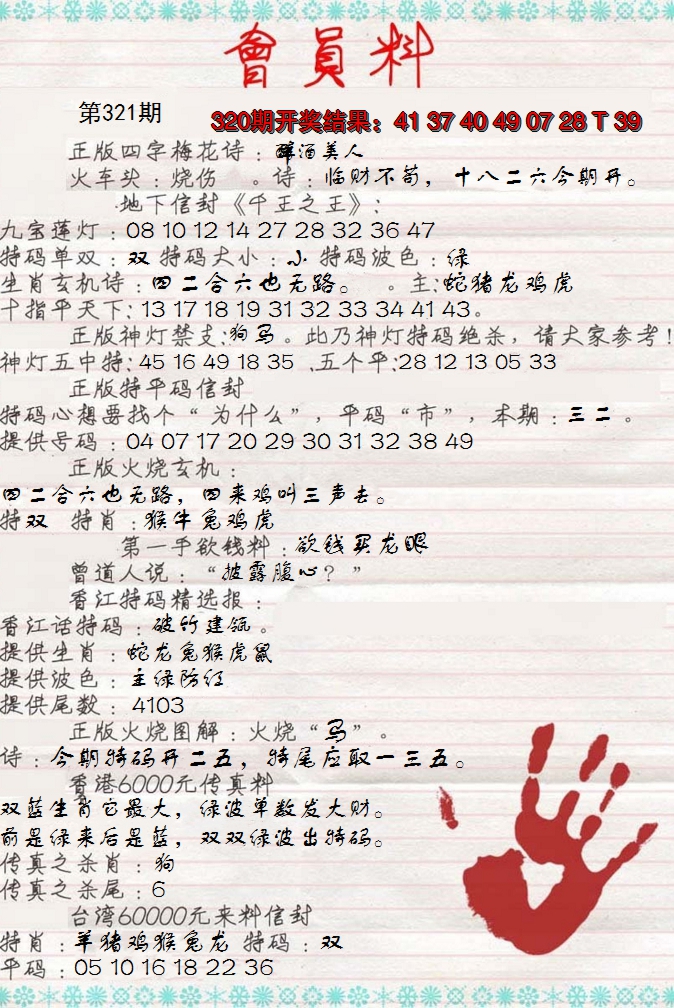 會員料
第321期
320期开奖结果：41 37 40 49 07 28 T 39
正版四字梅花诗：醉酒美人
火车头：烧伤 。诗：临财不苟，十八二六今期开。
地下信封《千王之王》：
九宝莲灯：08 10 12 14 27 28 32 36 47
特码单双：双 特码大小：小 特码波色：绿
生肖玄机诗：四二合六也无路。 。主：蛇猪龙鸡虎
十指平天下：13 17 18 19 31 32 33 34 41 43。
正版神灯禁支：狗马。此乃神灯特码绝杀，请大家参考！
神灯五中特：45 16 49 18 35 .五个平：28 12 13 05 33
正版特平码信封
特码心想要找个“为什么”，平码“市”，本期：三二。
提供号码：04 07 17 20 29 30 31 32 38 49
正版火烧玄机：
四二合六也无路，四来鸡叫三声去。
特双 特肖：猴牛兔鸡虎
第一手欲钱料：欲钱买龙眼
曾道人说：“披露腹心？”
香江特码精选报：
香江话特码：破竹建瓴。
提供生肖：蛇龙兔猴虎鼠
提供波色：主绿防红
提供尾数：4103
正版火烧图解：火烧“马”。
诗：今期特码开二五，特尾应取一三五。
香港6000元传真料
双蓝生肖它最大，绿波单数发大财。
前是绿来后是蓝，双双绿波出特码。
传真之杀肖：狗
传真之杀尾：6
台湾60000元来料信封
特肖：羊猪鸡猴兔龙 特码：双
平码：05 10 16 18 22 36